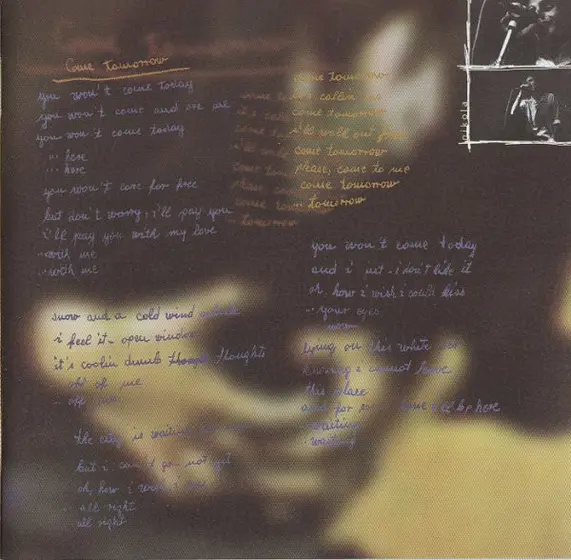 Come tomorrow
you won't come today
you won't come and see me
you won't come today
... here
... here
you won't care for free
but don't worry, i'll pay you
i'll pay you with my love
... with me
... with me
snow and a cold wind outside
i feel it - open window
it's coolin dumb though thoughts
... out of me
... off
the city is waiting
but i can't go not yet
oh, how i wish i
... all right
all right
come tomorrow
callin
come tomorrow
i'll walk out
come tomorrow
please, come to me
come tomorrow
... tomorrow
you won't come today
and i just - i don't like it
oh, how i wish i could kiss
... your eyes
now
lying on this white
i cannot leave
this place
and for i'll be here
waiting
waiting
nikola